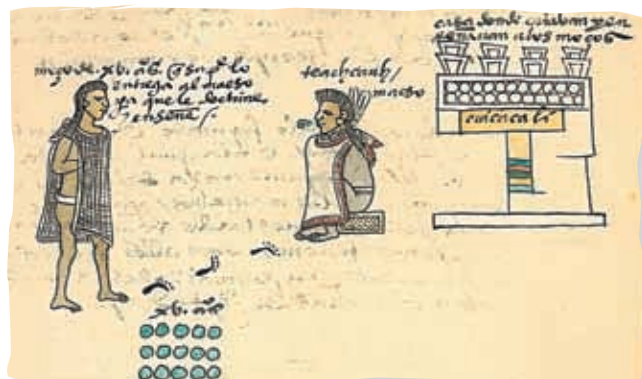 moço de. xv. años. q su pe lo
entrega al maeso
pa que le doctrine
y enseñe /.
teachcauh /
maeso
casa donde criavan y en
señavan a los moços
cuicacali
xv. años